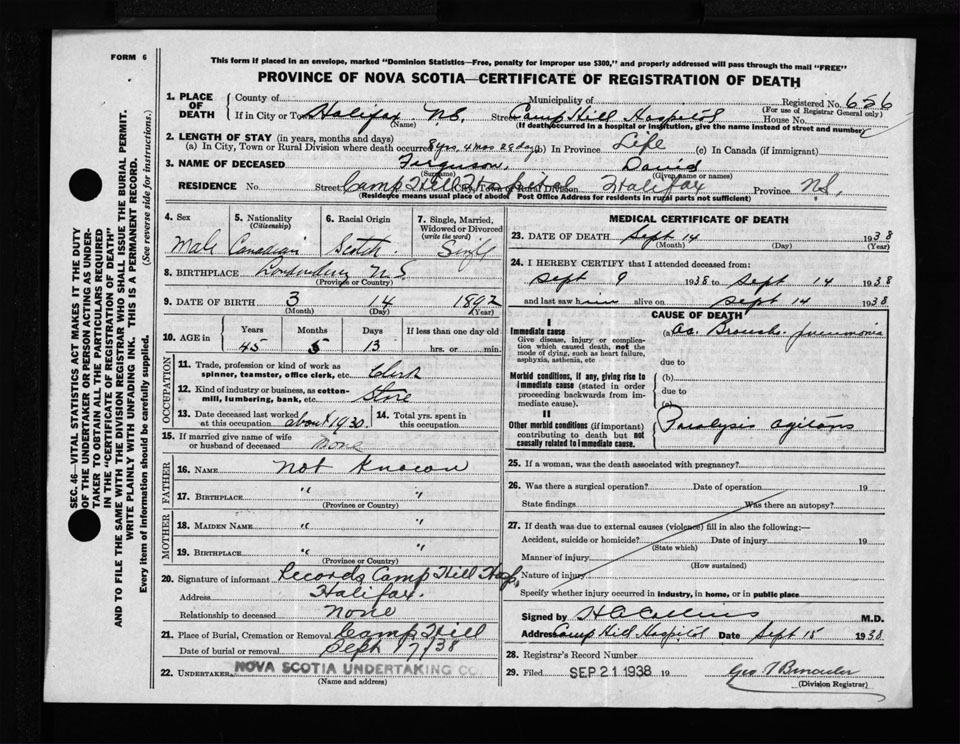 FORM 6
This form if placed in an envelope, marked "Dominion Statistics—Free, penalty for improper use $300," and properly addressed will pass through the mail "FREE"
PROVINCE OF NOVA SCOTIA—CERTIFICATE OF REGISTRATION OF DEATH
1. PLACE OF DEATH
County of Municipality of Registered No. 656
(For use of Registrar General only)
If in City or Town Halifax N.S. Street Camp Hill Hospital House No.
(Name) (If death occurred in a hospital or institution, give the name instead of street and number)
2. LENGTH OF STAY (in years, months and days)
(a) In City, Town or Rural Division where death occurred 8 yrs. 4 mos 29 day (b) In Province Life (c) In Canada (if immigrant)
3. NAME OF DECEASED Ferguson, David
(Surname) (Given name or names)
RESIDENCE No. Street Camp Hill Hospital City, Town or Rural Division Halifax Province N.S.
(Residence means usual place of abode. Post Office Address for residents in rural parts not sufficient)
4. Sex
5. Nationality (Citizenship)
6. Racial Origin
7. Single, Married, Widowed or Divorced (write the word)
Male Canadian Scotch Single
8. BIRTHPLACE Londonderry N.S.
(Province or Country)
9. DATE OF BIRTH 3 14 1892
(Month) (Day) (Year)
10. AGE in Years Months Days If less than one day old
45 5 13 hrs. or min.
OCCUPATION
11. Trade, profession or kind of work as spinner, teamster, office clerk, etc. Clerk
12. Kind of industry or business, as cotton-mill, lumbering, bank, etc. Store
13. Date deceased last worked at this occupation about 1930.
14. Total yrs. spent in this occupation
15. If married give name of wife or husband of deceased None
FATHER
16. NAME Not Known
17. BIRTHPLACE " "
(Province or Country)
MOTHER
18. MAIDEN NAME " "
19. BIRTHPLACE " "
(Province or Country)
20. Signature of informant Records Camp Hill Hosp.
Address Halifax.
Relationship to deceased None
21. Place of Burial, Cremation or Removal Camp Hill
Date of burial or removal Sept 17/38
22. UNDERTAKER NOVA SCOTIA UNDERTAKING CO
(Name and address)
MEDICAL CERTIFICATE OF DEATH
23. DATE OF DEATH Sept 14 1938
(Month) (Day) (Year)
24. I HEREBY CERTIFY that I attended deceased from:
Sept 9 1938 to Sept 14 1938
and last saw him alive on Sept 14 1938
CAUSE OF DEATH
I
Immediate cause
Give disease, injury or complication which caused death, not the mode of dying, such as heart failure, asphyxia, asthenia, etc
(a) Ac. Broncho-pneumonia
due to
Morbid conditions, if any, giving rise to immediate cause (stated in order proceeding backwards from immediate cause).
(b)
due to
(c)
II
Other morbid conditions (if important) contributing to death but not causally related to immediate cause.
Paralysis agitans
25. If a woman, was the death associated with pregnancy?
26. Was there a surgical operation? Date of operation 19
State findings Was there an autopsy?
27. If death was due to external causes (violence) fill in also the following:—
Accident, suicide or homicide? Date of injury 19
(State which)
Manner of injury
(How sustained)
Nature of injury
Specify whether injury occurred in industry, in home, or in public place
Signed by H A Collins M.D.
Address Camp Hill Hospital Date Sept 15 1938
28. Registrar's Record Number
29. Filed SEP 21 1938 19
(Division Registrar)
SEC. 46—VITAL STATISTICS ACT MAKES IT THE DUTY
OF THE UNDERTAKER OR PERSON ACTING AS UNDER-
TAKER TO OBTAIN ALL THE PARTICULARS REQUIRED
IN THE "CERTIFICATE OF REGISTRATION OF DEATH"
AND TO FILE THE SAME WITH THE DIVISION REGISTRAR WHO SHALL ISSUE THE BURIAL PERMIT.
WRITE PLAINLY WITH UNFADING INK. THIS IS A PERMANENT RECORD.
Every item of information should be carefully supplied. (See reverse side for instructions.)